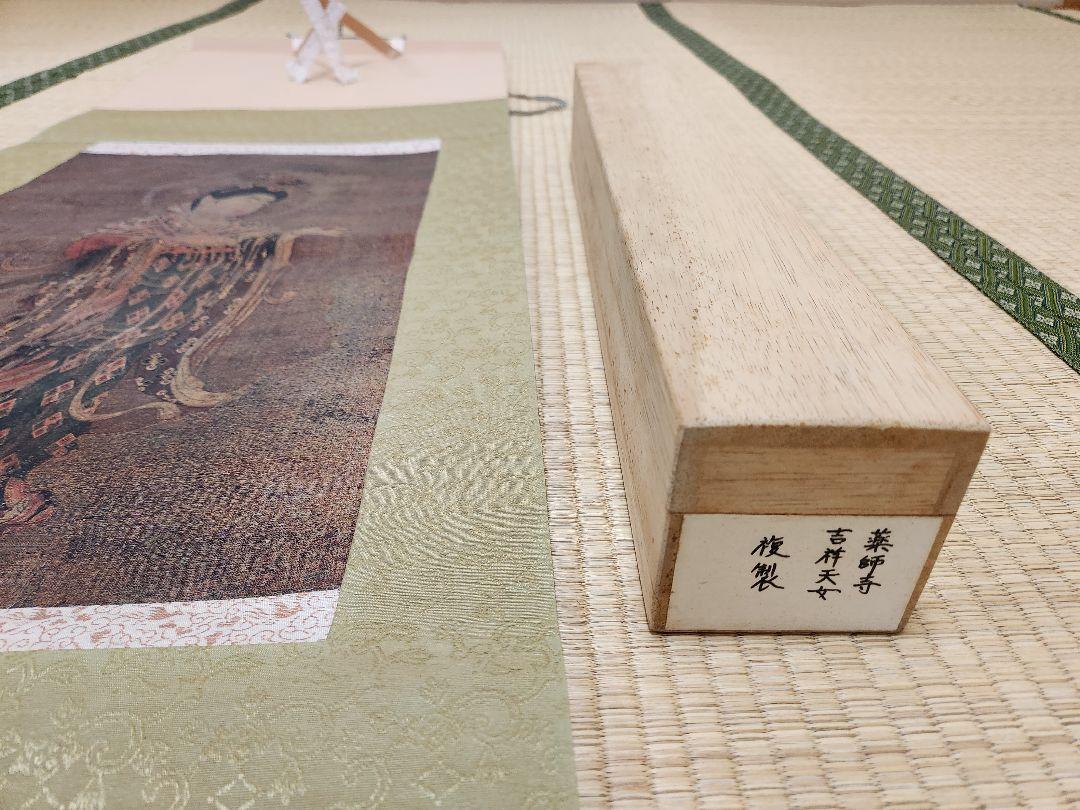 薬師寺
吉祥天女
複製